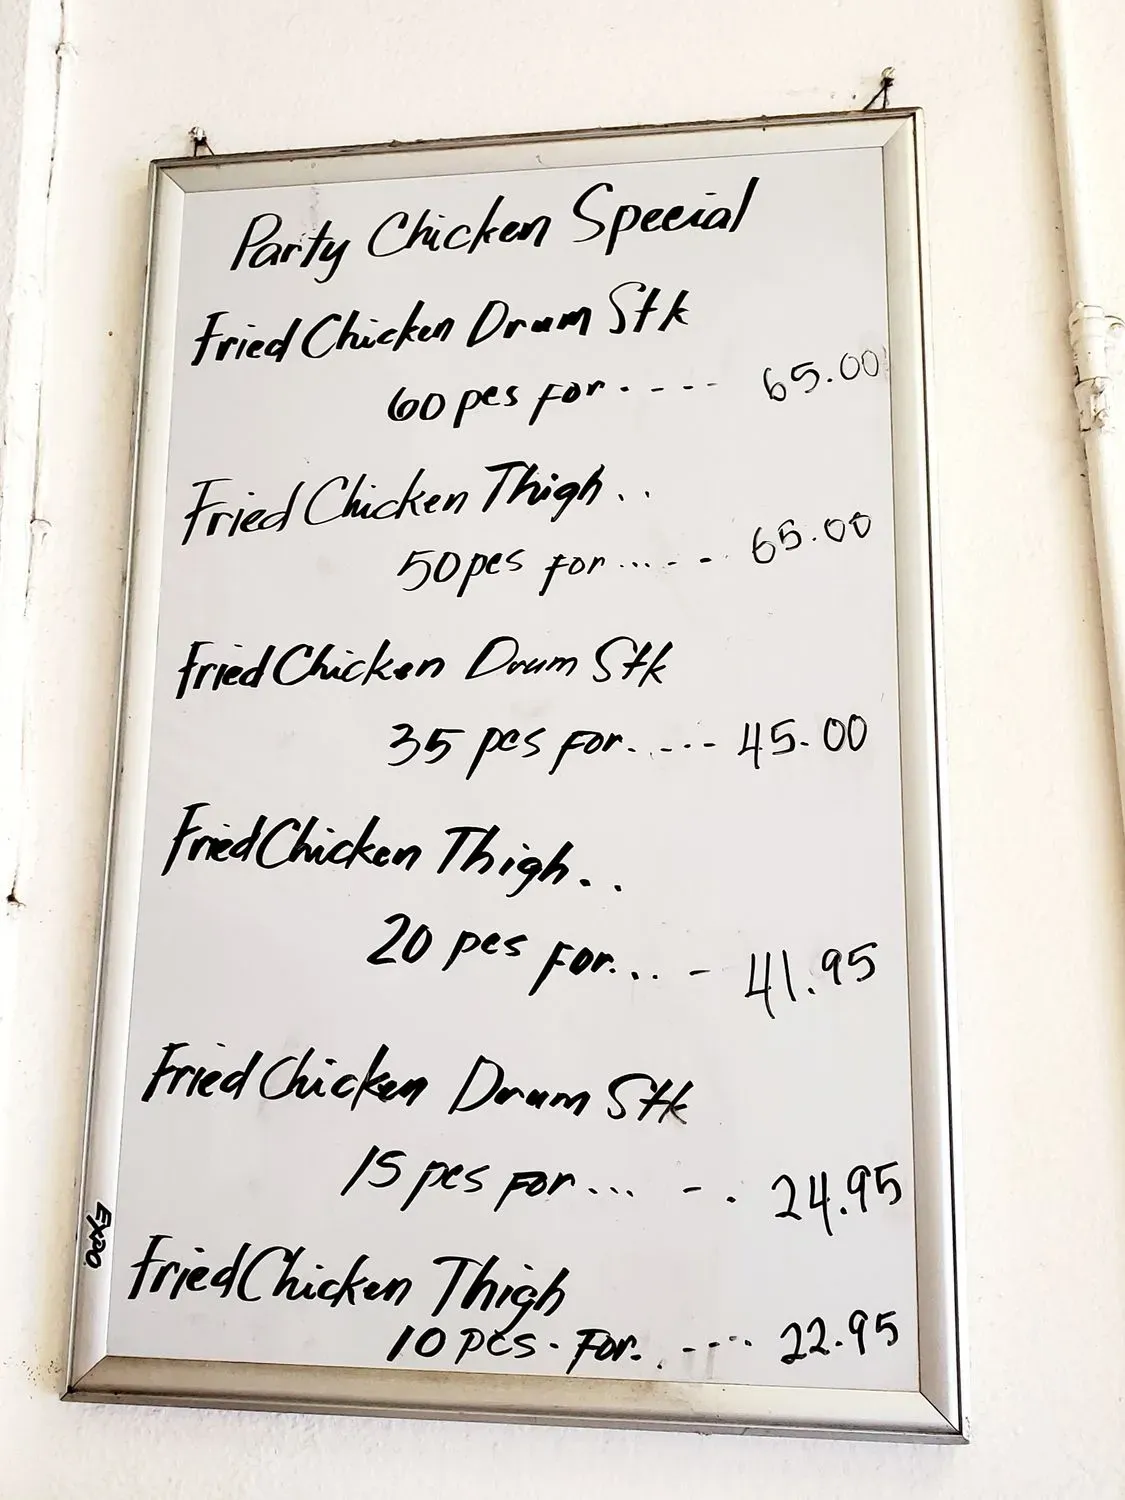 Party Chicken Special
Fried Chicken Drum Stk
60 pcs for. ---- 65.00
Fried Chicken Thigh..
50 pcs for...-- -. 65.00
Fried Chicken Drum Stk
35 pcs for. ...-- 45.00
Fried Chicken Thigh..
20 pcs for... - 41.95
Fried Chicken Drum Stk
15 pcs for... - . 24.95
Fried Chicken Thigh
10 pcs. For. . ---.. 22.95
EXPO